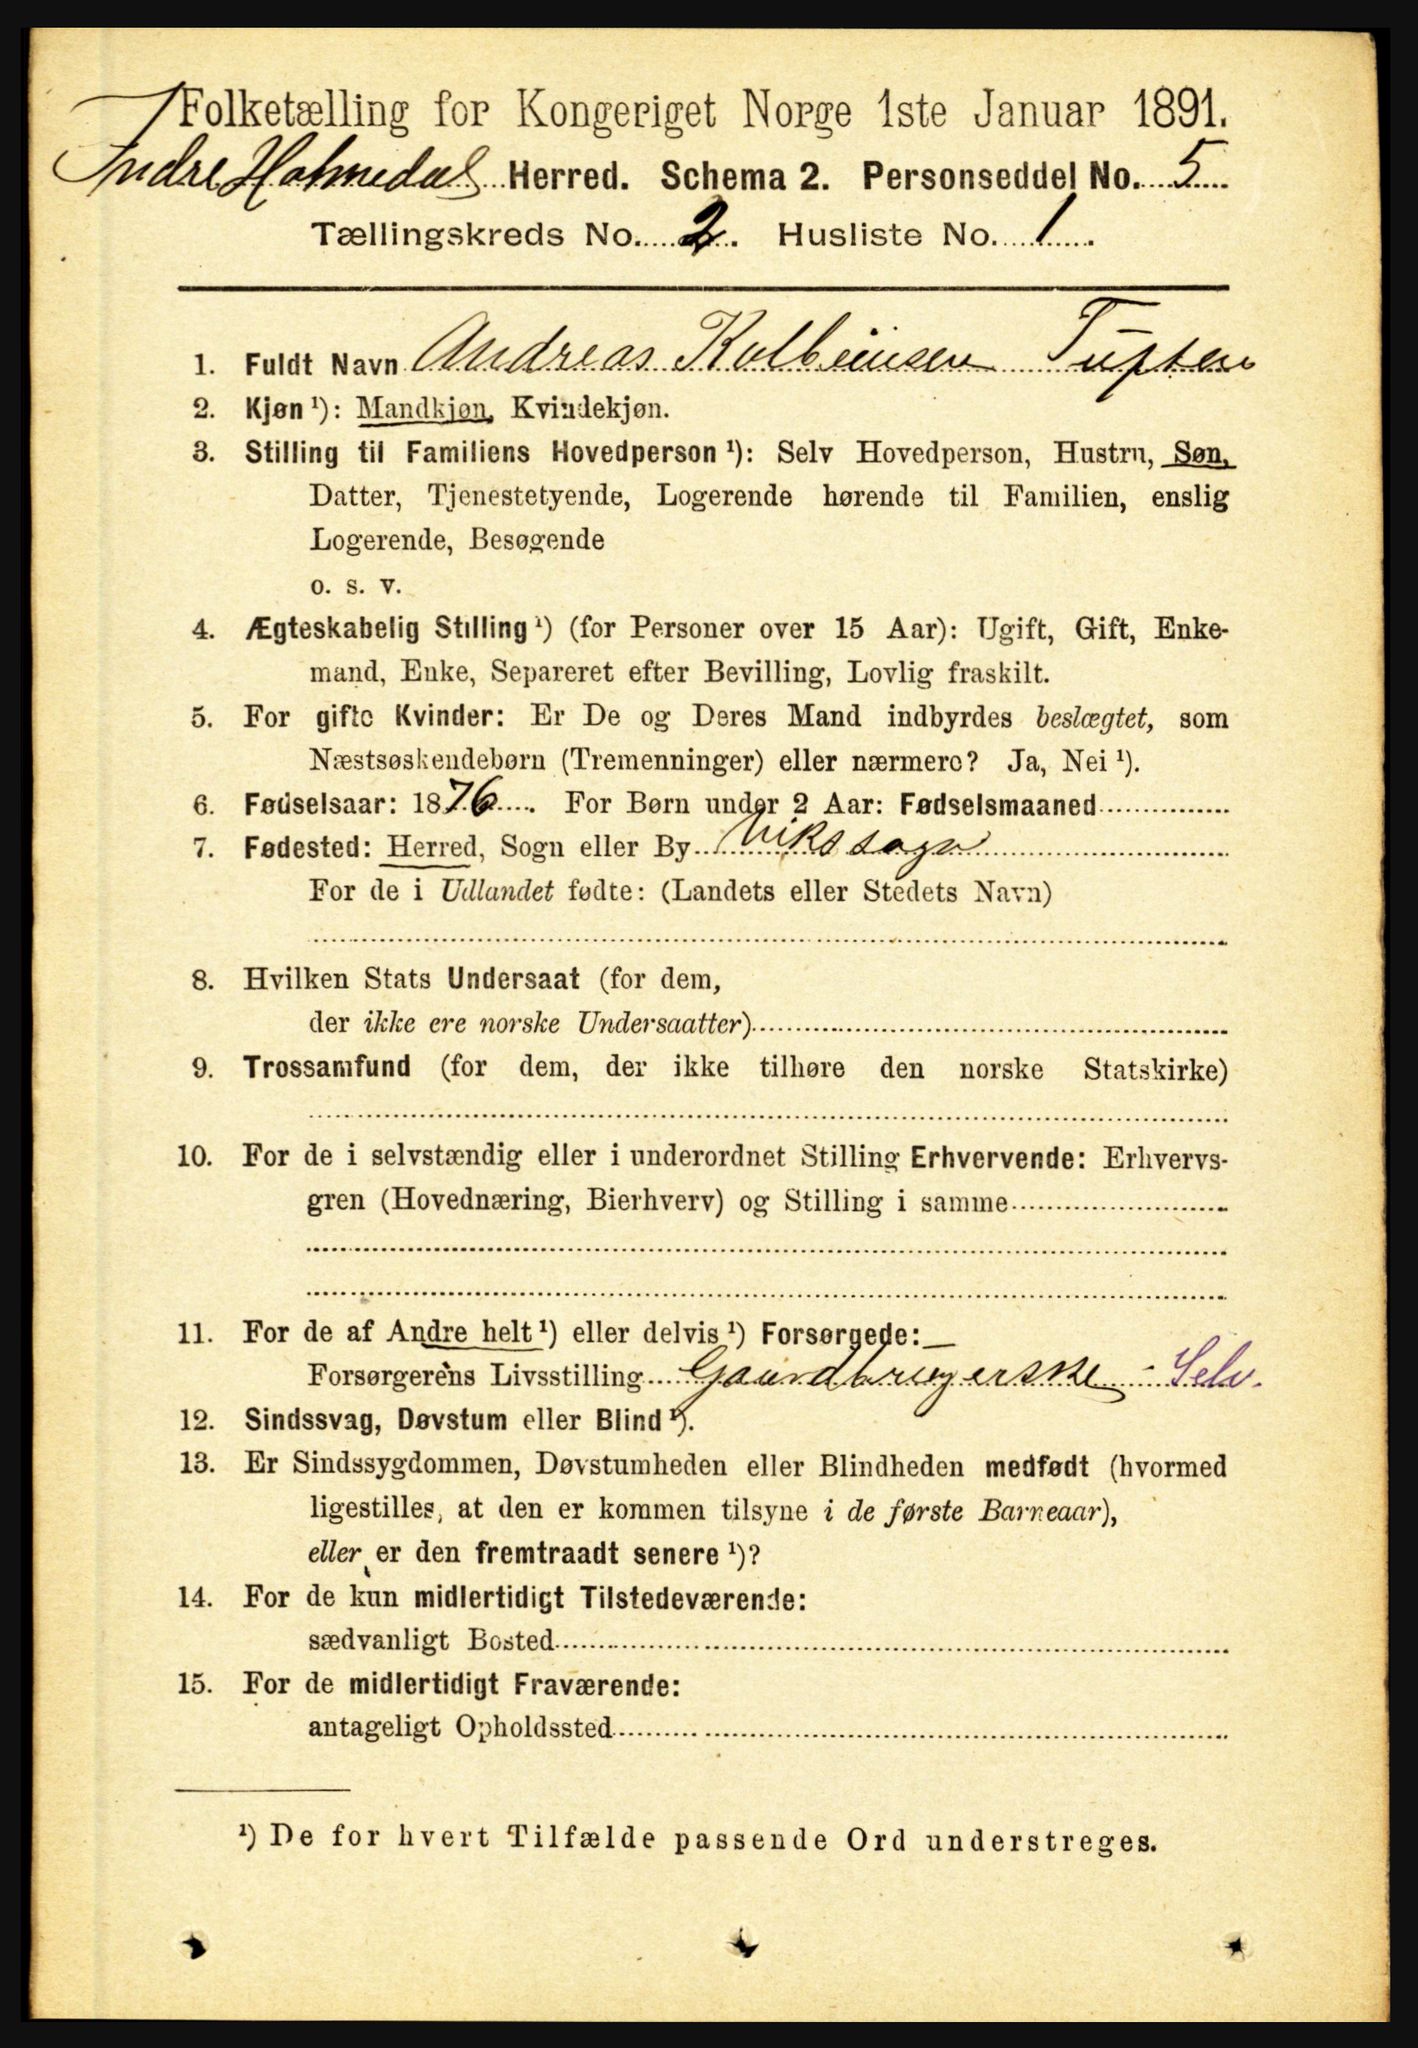 Folketælling for Kongeriget Norge 1ste Januar 1891.
Indre Holmedal Herred. Schema 2. Personseddel No. 5
Tællingskreds No. 2. Husliste No. 1.
1. Fuldt Navn Andreas Kolbeinsen Tuften
2. Kjøn ¹): Mandkjøn, Kvindekjøn.
3. Stilling til Familiens Hovedperson ¹): Selv Hovedperson, Hustru, Søn,
Datter, Tjenestetyende, Logerende hørende til Familien, enslig
Logerende, Besøgende
o. s. v.
4. Ægteskabelig Stilling ¹) (for Personer over 15 Aar): Ugift, Gift, Enke-
mand, Enke, Separeret efter Bevilling, Lovlig fraskilt.
5. For gifte Kvinder: Er De og Deres Mand indbyrdes beslægtet, som
Næstsøskendebørn (Tremenninger) eller nærmere? Ja, Nei ¹).
6. Fødselsaar: 1876. For Børn under 2 Aar: Fødselsmaaned
7. Fødested: Herred, Sogn eller By Viks sogn
For de i Udlandet fødte: (Landets eller Stedets Navn)
8. Hvilken Stats Undersaat (for dem,
der ikke ere norske Undersaatter)
9. Trossamfund (for dem, der ikke tilhøre den norske Statskirke)
10. For de i selvstændig eller i underordnet Stilling Erhvervende: Erhvervs-
gren (Hovednæring, Bierhverv) og Stilling i samme
11. For de af Andre helt ¹) eller delvis ¹) Forsørgede:
Forsørgerens Livsstilling Gaardbrugerske - Selv.
12. Sindssvag, Døvstum eller Blind ¹).
13. Er Sindssygdommen, Døvstumheden eller Blindheden medfødt (hvormed
ligestilles, at den er kommen tilsyne i de første Barneaar),
eller er den fremtraadt senere ¹)?
14. For de kun midlertidigt Tilstedeværende:
sædvanligt Bosted
15. For de midlertidigt Fraværende:
antageligt Opholdssted
¹) De for hvert Tilfælde passende Ord understreges.